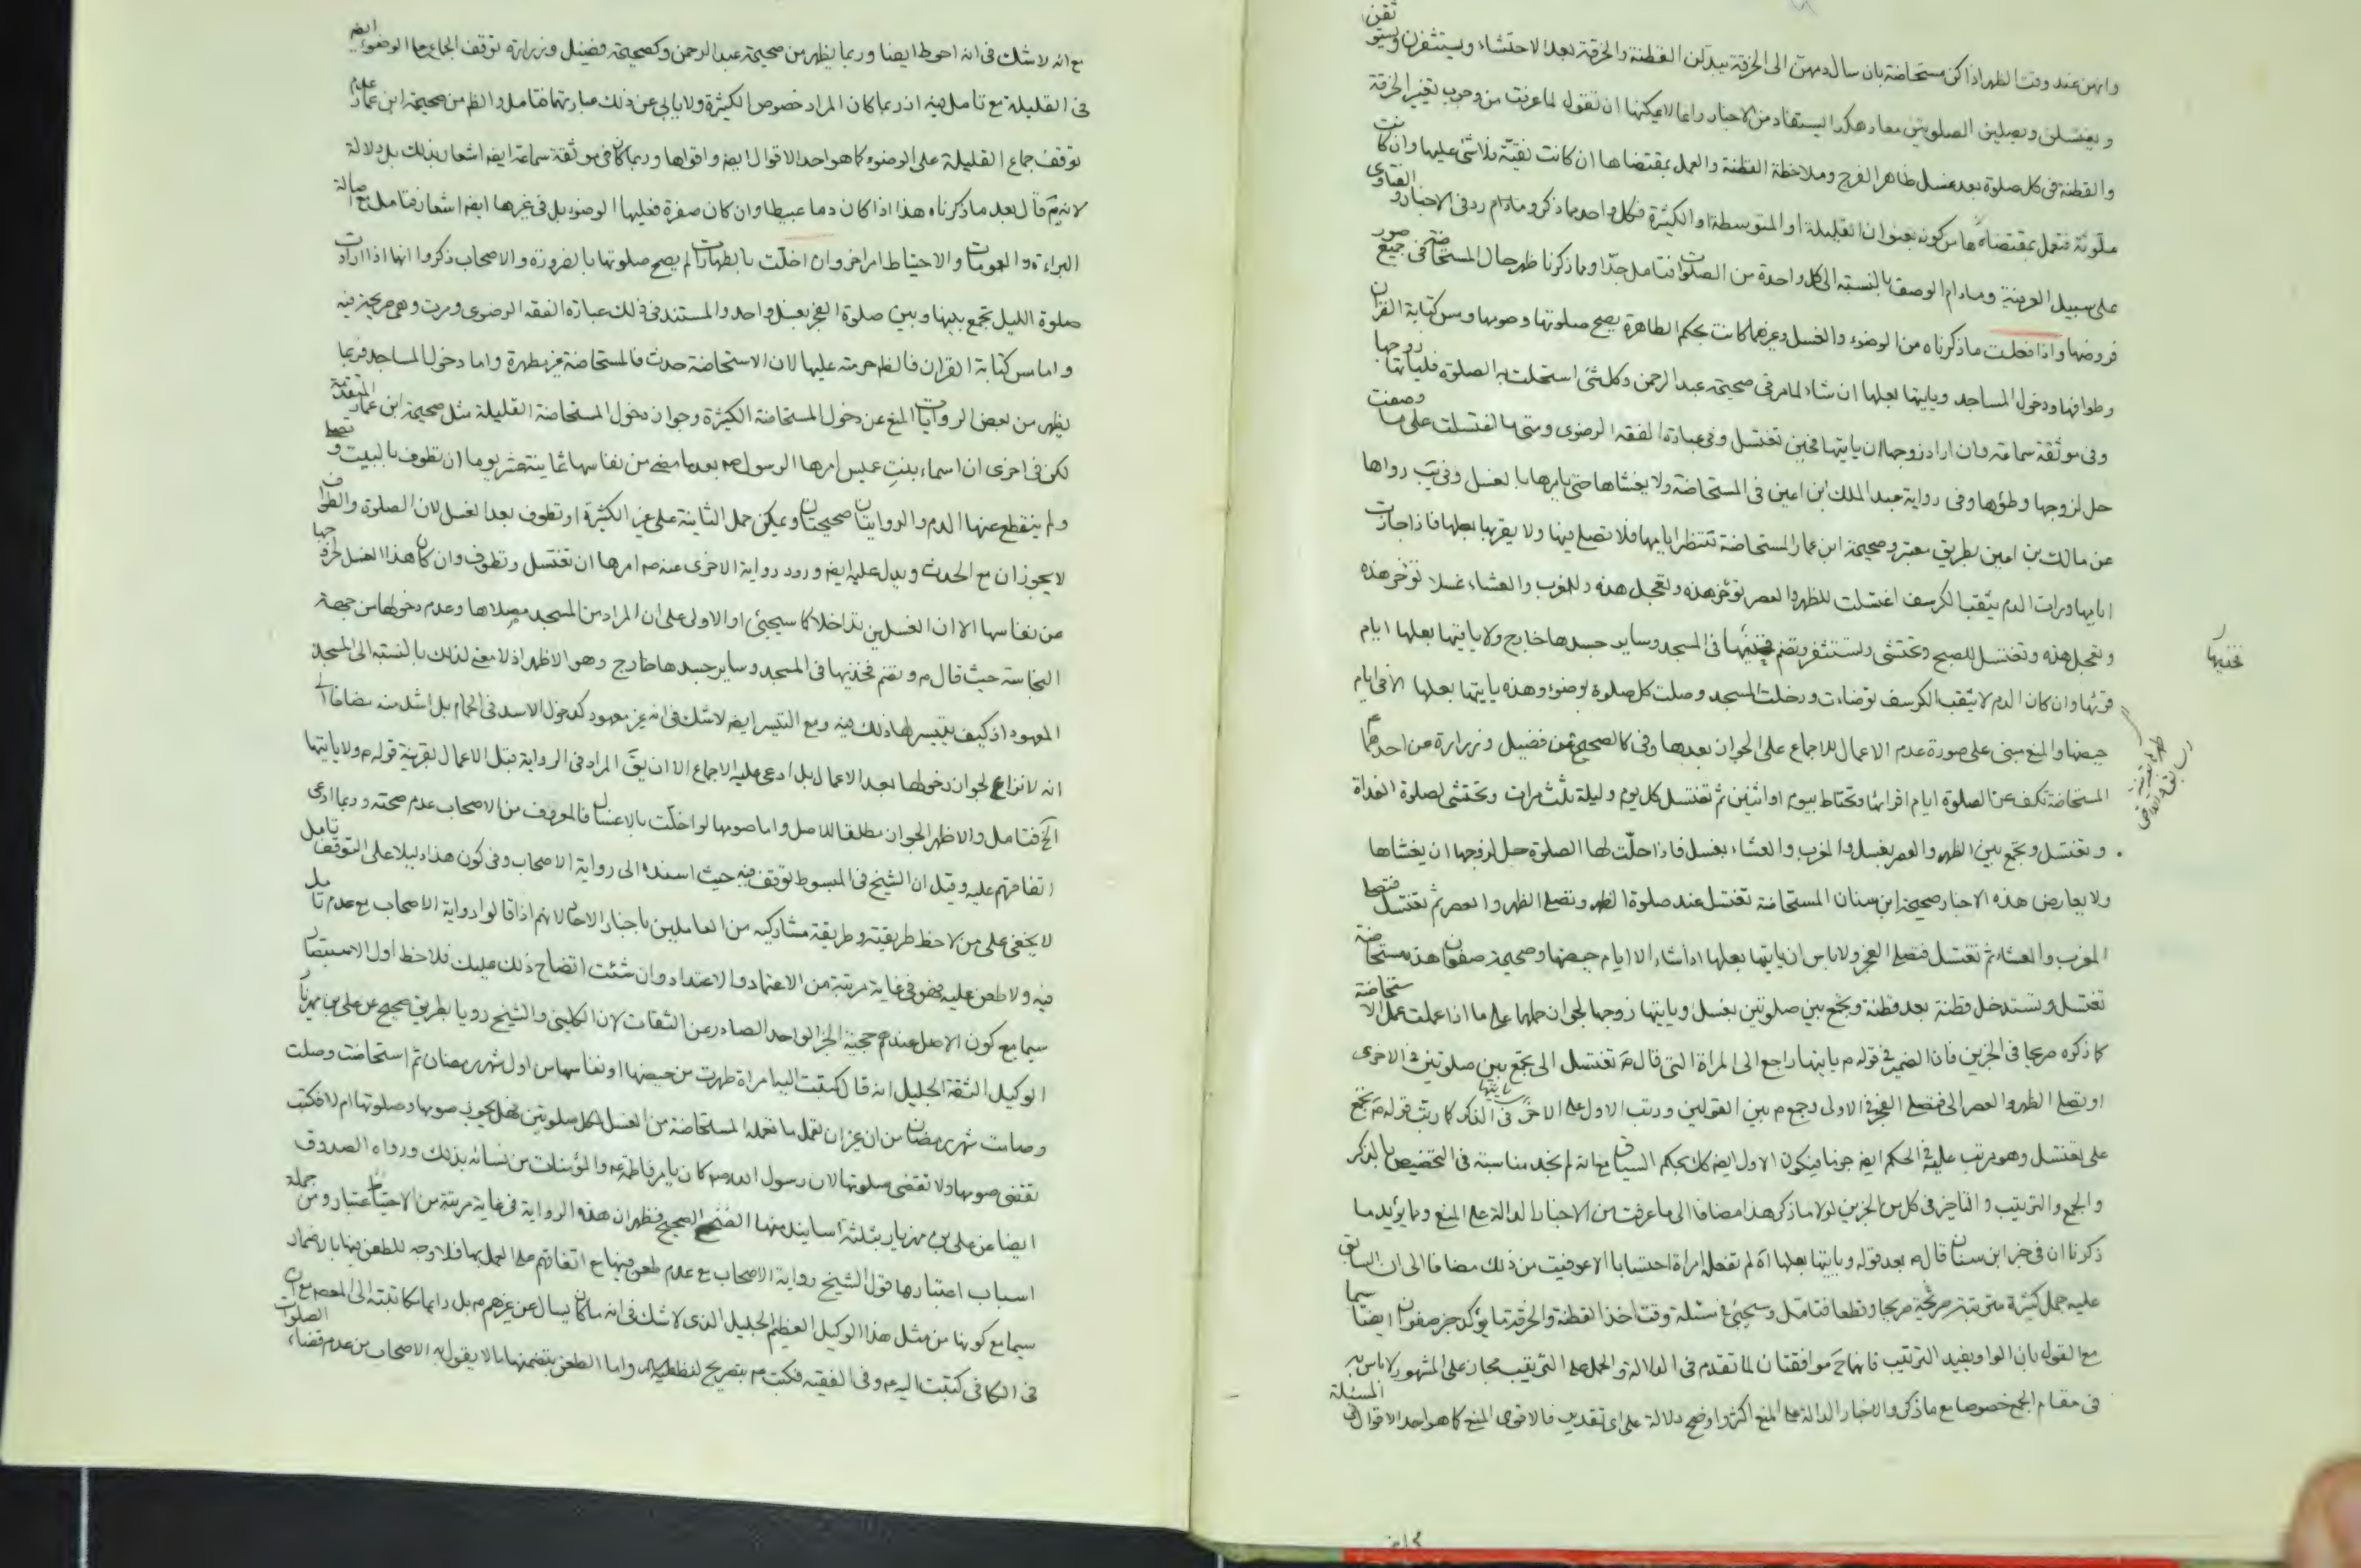 وانهن عند وقت الظهر اذا كن مستحاضة بان سال دمهن الى الخرقة يبدلن القطنة والخرقة بعد الاحتشاء ويستثفرن ويستوثقن
ويغتسلن ويصلين الصلوتين معا هكذا يستفاد من الاخبار وانما لا يمكنها ان تقول لما عرفت من وجوب تغيير الخرقة
والقطنة فى كل صلوة بعد غسل ظاهر الفرج وملاحظة القطنة والعمل بمقتضاها ان كانت نقيّة فلا شئ عليها وان كانت
ملوّثة فتعمل بمقتضاها من كونه بعنوان القليلة او المتوسطة او الكثيرة فكل واحد مما ذكر وما دام رد فى الاخبار والفتاوى
على سبيل العرضية وما دام الوصف بالنسبة الى كل واحدة من الصلوات فتامل جدّا ومما ذكرنا ظهر حال المستحاضة فى جميع صور
فروضها واذا فعلت ما ذكرناه من الوضوء والغسل وغيرهما كانت بحكم الطاهرة يصح صلوتها وصومها ومس كتابة القران
وطوافها ودخول المساجد وياتيها بعلها ان شاء لما مر فى صحيحة عبد الرحمن وكل شئ استحلت به الصلوة فلياتها زوجها
وفى موثقة سماعة وان اراد زوجها ان ياتيها فحين تغتسل وفى عبارة الفقه الرضوى ومتى ما اغتسلت على ما وصفت
حل لزوجها وطؤها وفى رواية عبد الملك ابن اعين فى المستحاضة ولا يغشاها حتى يامرها بالغسل وفى يب رواها
عن مالك بن اعين بطريق معتبر وصحيحة ابن عمار المستحاضة تنتظر ايامها فلا تصلى فيها ولا يقربها بعلها فاذا جازت
ايامها ورات الدم يثقب الكرسف اغتسلت للظهر والعصر تؤخر هذه وتعجل هذه وللمغرب والعشاء غسلا تؤخر هذه
وتعجل هذه وتغتسل للصبح وتحتشى وتستثفر وتضم فخذيها فى المسجد وساير جسدها خارج ولا ياتيها بعلها ايام
قرئها وان كان الدم لا يثقب الكرسف توضات ودخلت المسجد وصلت كل صلوة بوضوء وهذه ياتيها بعلها الا فى ايام
حيضها والمنع مبنى على صورة عدم الاعمال للاجماع على الجواز بعدها وفى كالصحيح عن فضيل وزرارة عن احدهما ع
المستحاضة تكف عن الصلوة ايام اقرائها وتحتاط بيوم او اثنين ثم تغتسل كل يوم وليلة ثلث مرات وتحتشى لصلوة الغداة
وتغتسل وتجمع بين الظهر والعصر بغسل والمغرب والعشاء بغسل فاذا حلّت لها الصلوة حل لزوجها ان يغشاها
ولا يعارض هذه الاخبار صحيحة ابن سنان المستحاضة تغتسل عند صلوة الظهر وتصلى الظهر والعصر ثم تغتسل فتصلى
المغرب والعشاء ثم تغتسل فتصلى الفجر ولا باس ان ياتيها بعلها اذا شاء الا ايام حيضها وصحيحة صفوان هذه مستحاضة
تغتسل وتستدخل قطنة بعد قطنة وتجمع بين صلوتين بغسل وياتيها زوجها لجواز حملها على ما اذا عملت عمل الاستحاضة
كما ذكره صريحا فى الخبرين فان الضمير فى قوله م ياتيها راجع الى المراة التى قال م تغتسل الى تجمع بين صلوتين فى الاخرى
او تصلى الظهر والعصر الى فتصلى الفجر فى الاولى وجمع م بين القولين ورتب الاول على الاخر فى الذكر كما رتب قوله م تجمع
على تغتسل وهو مرتب عليه فى الحكم ايض جزما فيكون الاول ايض كك بحكم السياق مع انه لم نجد مناسبة فى التخصيص بالذكر
والجمع والترتيب والتاخير فى كل من الخبرين لولا ما ذكر هذا مضافا الى ما عرفت من الاخبار الدالة على المنع ومما يؤيد ما
ذكرنا ان فى خبر ابن سنان قال م بعد قوله وياتيها بعلها اه لم تفعله امراة احتسابا الا عوفيت من ذلك مضافا الى ان السابق
عليه جمل كثيرة مترتبة صريحا وقطعا فتامل وسيجئ فى مسئلة وقت اخذ القطنة والخرقة ما يؤكد خبر صفوان ايضا سيما
مع القول بان الواو يفيد الترتيب فانهما ح موافقتان لما تقدم فى الدلالة والحمل على الترتيب مجاز على المشهور لا باس به
فى مقام الجمع خصوصا مع ما ذكر والاخبار الدالة على المنع اكثر واوضح دلالة على اى تقدير فالاقوى المنع كما هو احد الاقوال فى المسئلة
فخذيها
مع انه لا شك فى انه احوط ايضا وربما يظهر من صحيحة عبد الرحمن وكصحيحة فضيل وزرارة توقف الجماع على الوضوء ايض
فى القليلة مع تامل فيه اذ ربما كان المراد خصوص الكثيرة ولا يابى عن ذلك عبارتهما فتامل والظ من صحيحة ابن عمار عدم
توقف جماع القليلة على الوضوء كما هو احد الاقوال ايض واقواها وربما كان فى موثقة سماعة ايض اشعار بذلك بل دلالة
لانه م قال بعد ما ذكرناه هذا اذا كان دما عبيطا وان كان صفرة فعليها الوضوء بل فى غيرها ايض اشعار فتامل مع اصالة
البراءة والعمومات والاحتياط امر اخر وان اخلّت بالطهارات لم يصح صلوتها بالضرورة والاصحاب ذكروا انها اذا ارادت
صلوة الليل تجمع بينها وبين صلوة الفجر بغسل واحد والمستند فى ذلك عبارة الفقه الرضوى ومرت وهى صريحة فيه
واما مس كتابة القران فالظ حرمته عليها لان الاستحاضة حدث فالمستحاضة غير مطهرة واما دخول المساجد فربما
يظهر من بعض الروايات المنع عن دخول المستحاضة الكثيرة وجواز دخول المستحاضة القليلة مثل صحيحة ابن عمار المتقدمة
لكن فى اخرى ان اسماء بنت عميس امرها الرسول ص بعد ما مضى من نفاسها ثمانية عشر يوما ان تطوف بالبيت وتصلى
ولم ينقطع عنها الدم والروايتان صحيحتان ويمكن حمل الثانية على غير الكثيرة او تطوف بعد الغسل لان الصلوة والطواف
لا يجوزان مع الحدث ويدل عليه ايض ورود رواية الاخرى عنه ص امرها ان تغتسل وتطوف وان كان هذا الغسل لخروجها
عن نفاسها الا ان الغسلين تداخلا كما سيجئ او الاولى على ان المراد من المسجد مصلاها وعدم دخولها من جهة
النجاسة حيث قال م وتضم فخذيها فى المسجد وساير جسدها خارج وهو الاظهر اذ لا معنى لذلك بالنسبة الى المسجد
المعهود اذ كيف يتيسر لها ذلك فيه ومع التيسر ايض لا شك فى انه غير معهود كدخول الاسد فى الحمام بل اشد منه مضافا الى
انه لا نزاع لجواز دخولها بعد الاعمال بل ادعى عليه الاجماع الا ان يقَ المراد فى الرواية قبل الاعمال بقرينة قوله م ولا ياتيها
الخ فتامل والاظهر الجواز مطلقا للاصل واما صومها لو اخلّت بالاغسال فالمعروف من الاصحاب عدم صحته وربما ادعى
اتفاقهم عليه وقيل ان الشيخ فى المبسوط توقف فيه حيث اسنده الى رواية الاصحاب وفى كون هذا دليلا على التوقف تامل
لا يخفى على من لاحظ طريقته وطريقة مشاركيه من العاملين باخبار الاحاد لانهم اذا قالوا رواية الاصحاب مع عدم تامل
فيه ولا طعن عليه فهو فى غاية مرتبة من الاعتماد والاعتداد وان شئت اتضاح ذلك عليك فلاحظ اول الاستبصار
سيما مع كون الاصل عندهم حجية الخبر الواحد الصادر عن الثقات لان الكلينى والشيخ رويا بطريق صحيح عن على بن مهزيار
الوكيل الثقة الجليل انه قال كتبت اليه امراة طهرت من حيضها او نفاسها من اول شهر رمضان ثم استحاضت وصلت
وصامت شهر رمضان من غير ان تعمل ما تعمله المستحاضة من الغسل لكل صلوتين فهل يجوز صومها وصلوتها ام لا فكتب
تقضى صومها ولا تقضى صلوتها لان رسول الله ص كان يامر فاطمة ع والمؤمنات من نسائه بذلك ورواه الصدوق
ايضا عن على بن مهزيار بثلثة اسانيد منها الصحيح فظهر ان هذه الرواية فى غاية مرتبة من الاعتبار ومن جملة
اسباب اعتبارها قول الشيخ رواية الاصحاب مع عدم طعن فيها مع اتفاقهم على العمل بها فلا وجه للطعن فيها بالاضمار
سيما مع كونها من مثل هذا الوكيل العظيم الجليل الذى لا شك فى انه ما كان يسال عن غيرهم م بل دايما مكاتبته الى المعصوم مع ان
فى الكافى كتبت اليه م وفى الفقيه فكتب م بتصريح لفظ واما الطعن بتضمنها ما لا يقول به الاصحاب من عدم قضاء الصلوات